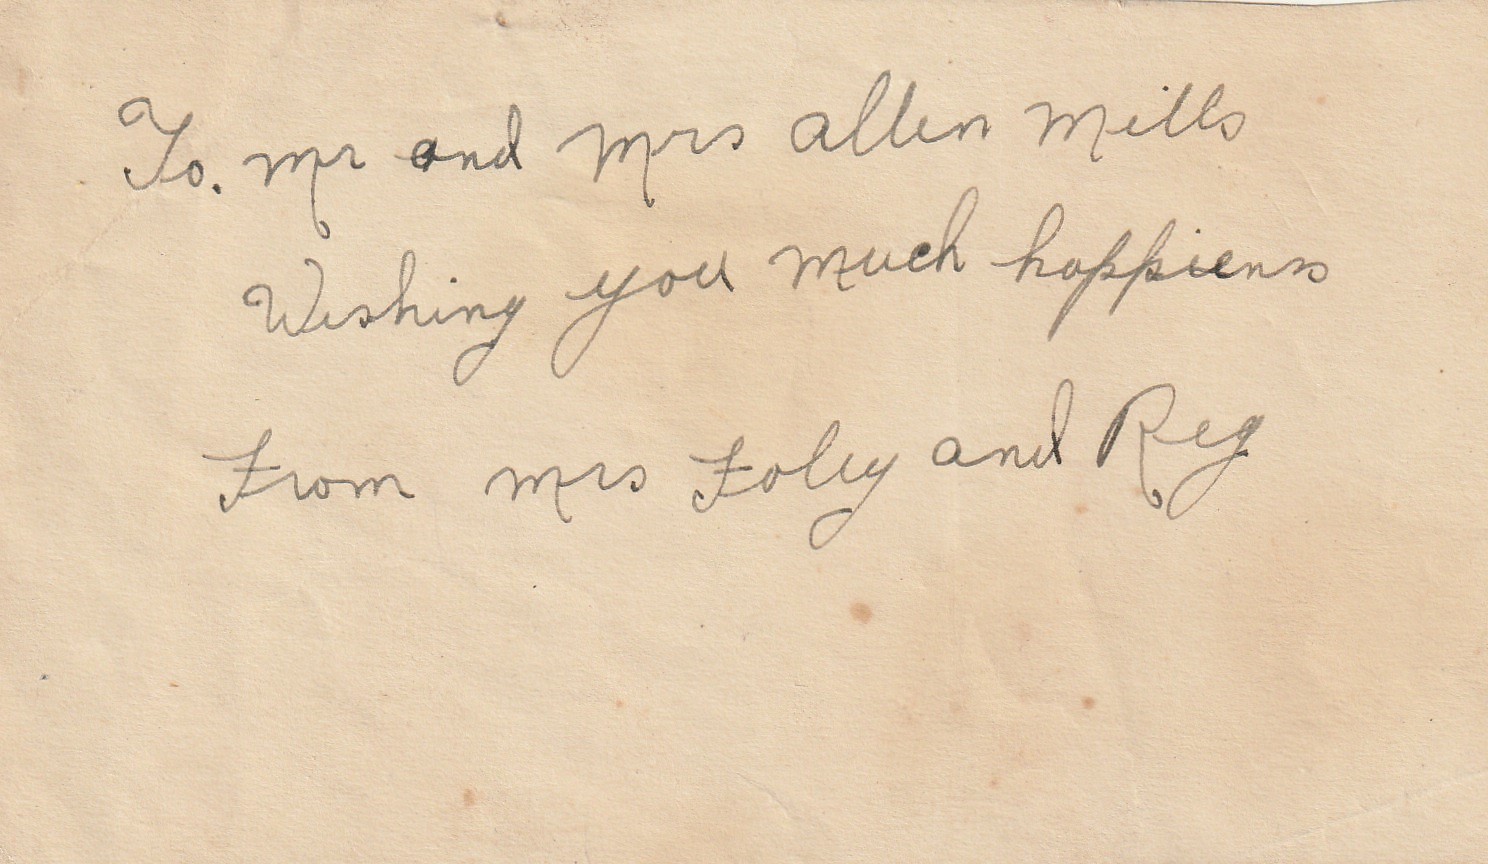 To. Mr and Mrs Allen Mills
Wishing you much happiens
From Mrs Foley and Reg